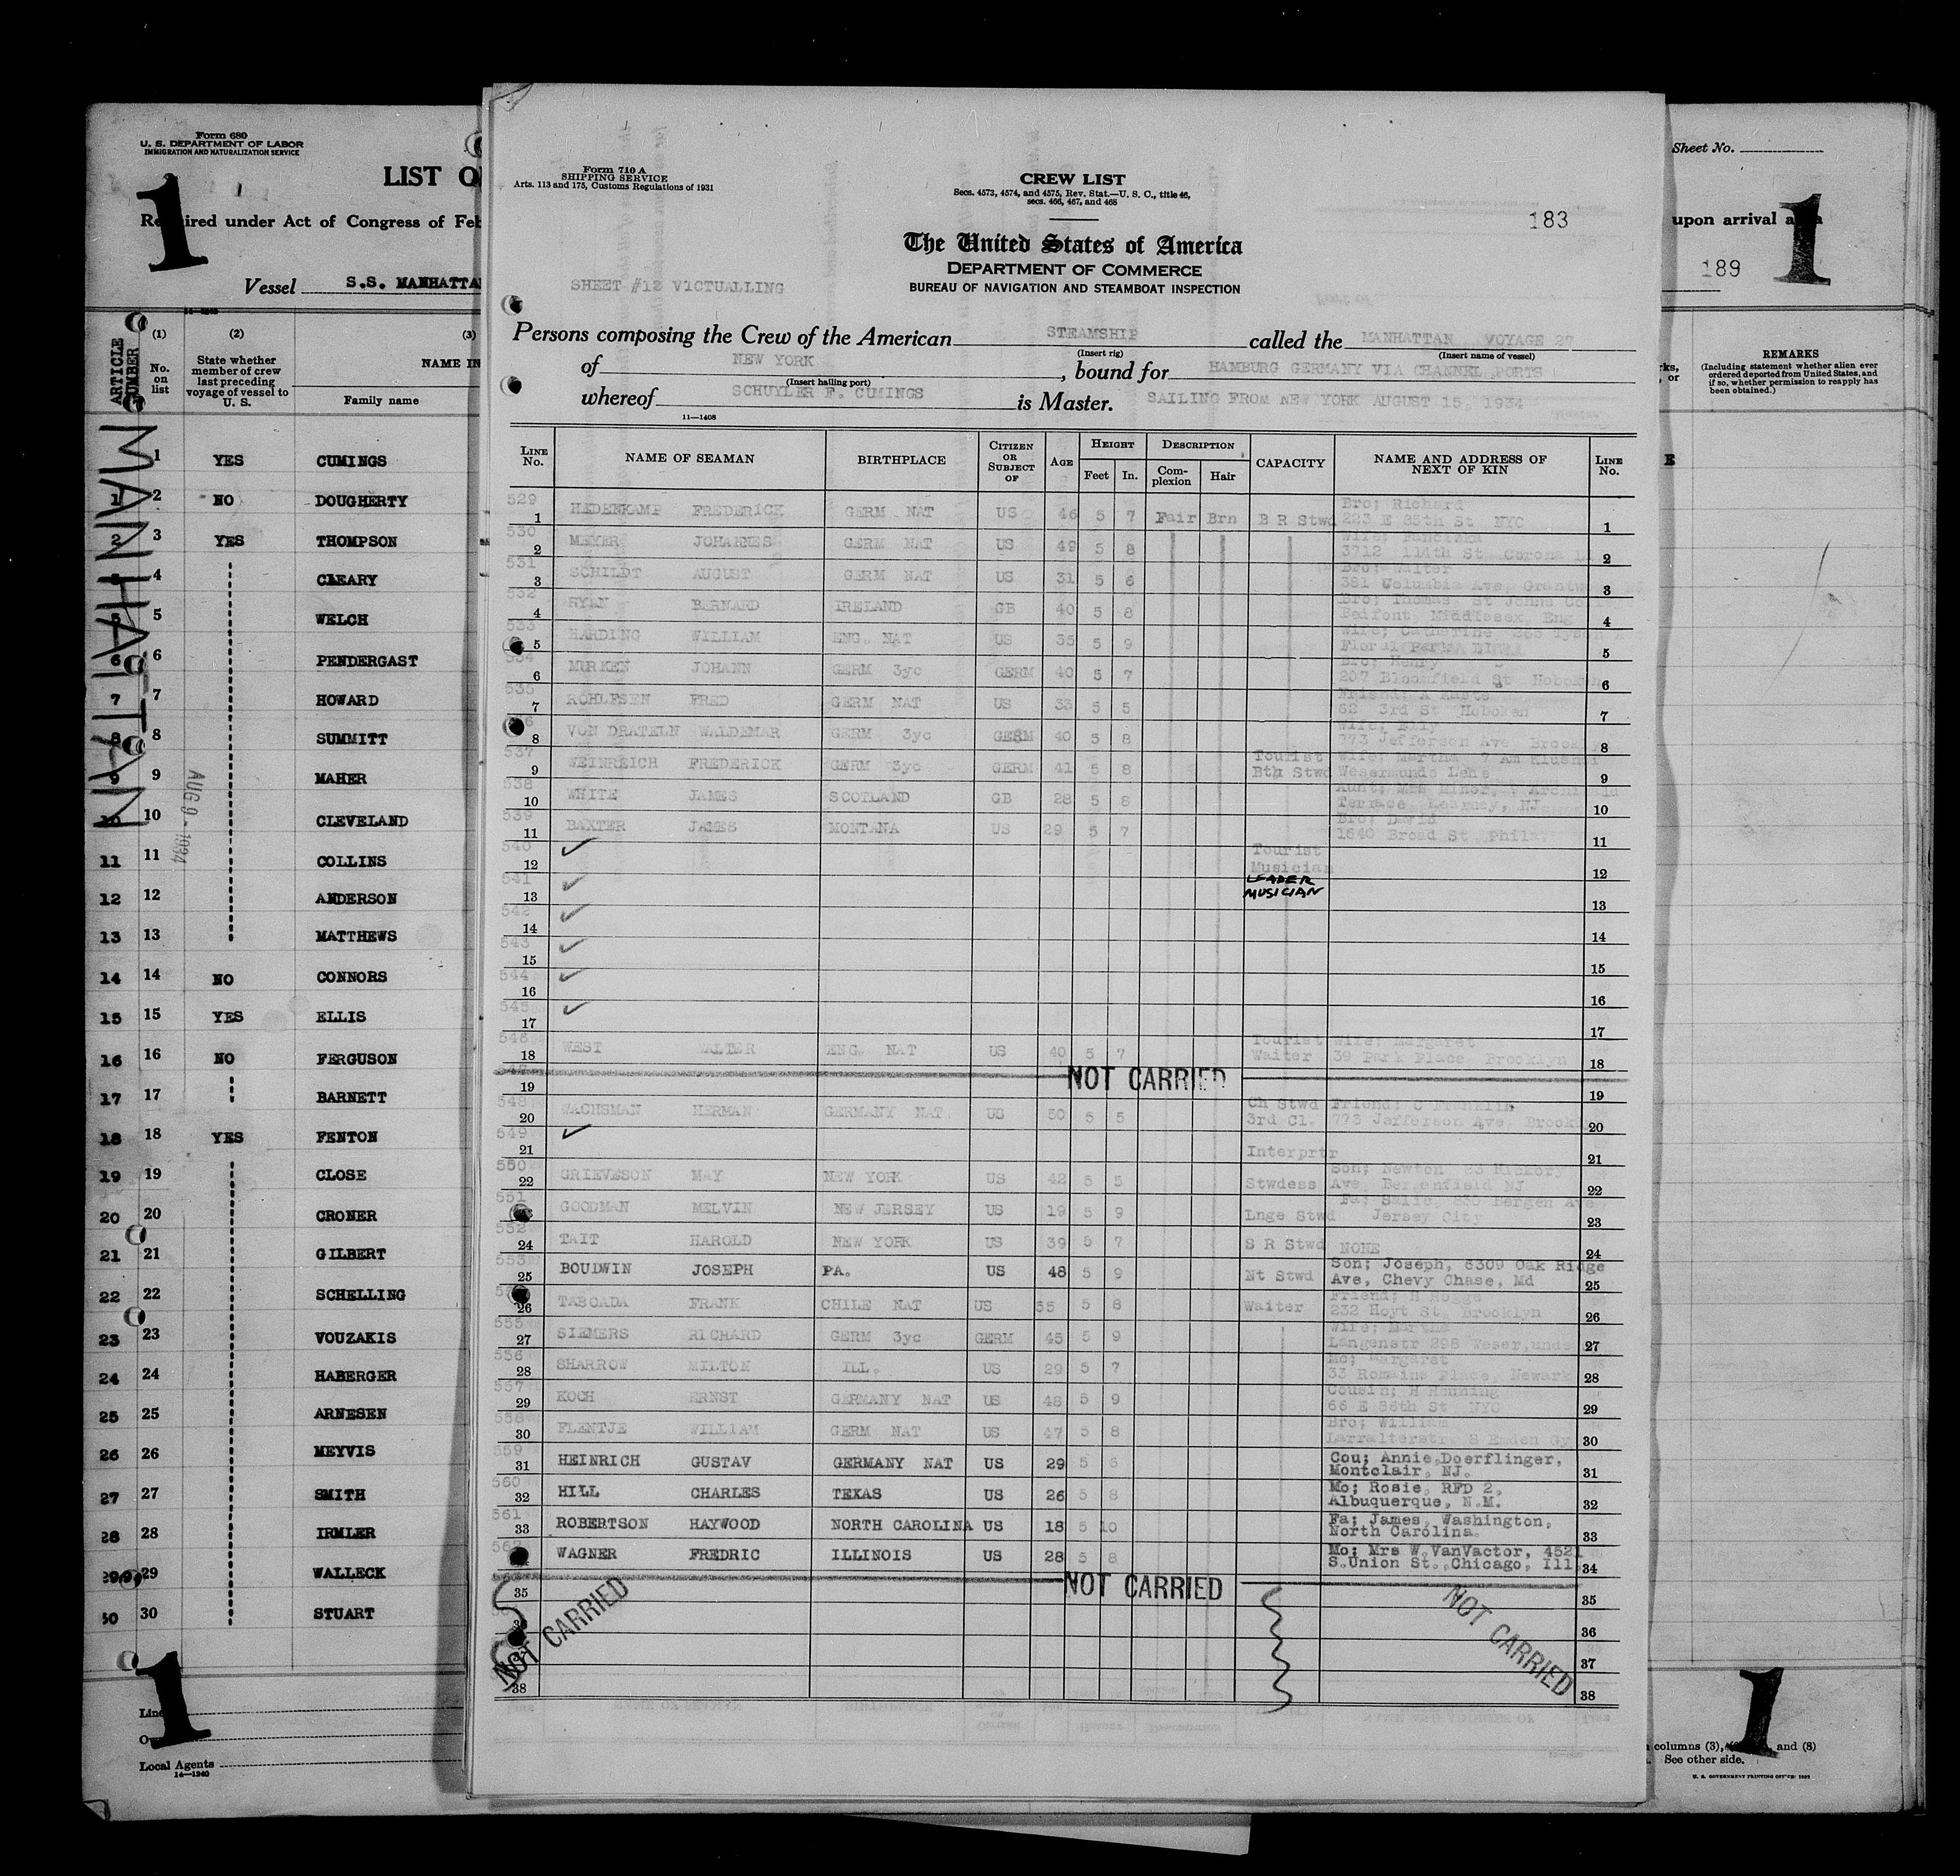 Form 680
U. S. DEPARTMENT OF LABOR
IMMIGRATION AND NATURALIZATION SERVICE
1
LIST O
Required under Act of Congress of Feb
Vessel S.S. MANHATTAN
ARTICLE NUMBER
(1) (2) (3)
No. on list
State whether member of crew last preceding voyage of vessel to U. S.
NAME IN
Family name
MANHATTAN
AUG 9 - 1934
1 YES CUMINGS
1 2 NO DOUGHERTY
2 3 YES THOMPSON
4 CLEARY
5 5 WELCH
6 6 PENDERGAST
7 7 HOWARD
8 8 SUMMITT
9 9 MAHER
10 10 CLEVELAND
11 11 COLLINS
12 12 ANDERSON
13 13 MATTHEWS
14 14 NO CONNORS
15 15 YES ELLIS
16 16 NO FERGUSON
17 17 BARNETT
18 18 YES FENTON
19 19 CLOSE
20 20 CRONER
21 21 GILBERT
22 22 SCHELLING
23 23 VOUZAKIS
24 24 HABERGER
25 25 ARNESEN
26 26 MEYVIS
27 27 SMITH
28 28 IRMLER
29 29 WALLECK
30 30 STUART
1
Line
O
Local Agents
14—1240
Form 710 A
SHIPPING SERVICE
Arts. 113 and 175, Customs Regulations of 1931
CREW LIST
Secs. 4573, 4574, and 4575, Rev. Stat.—U. S. C., title 46,
secs. 466, 467, and 468
183
The United States of America
DEPARTMENT OF COMMERCE
BUREAU OF NAVIGATION AND STEAMBOAT INSPECTION
SHEET #12 VICTUALLING
Persons composing the Crew of the American STEAMSHIP called the MANHATTAN VOYAGE 27
(Insert rig) (Insert name of vessel)
of NEW YORK, bound for HAMBURG GERMANY VIA CHANNEL PORTS
(Insert hailing port)
whereof SCHUYLER F. CUMINGS is Master. SAILING FROM NEW YORK AUGUST 15, 1934
11—1408
LINE No. NAME OF SEAMAN BIRTHPLACE CITIZEN OR SUBJECT OF AGE HEIGHT Feet In. DESCRIPTION Complexion Hair CAPACITY NAME AND ADDRESS OF NEXT OF KIN LINE No.
529 1 HEDENKAMP FREDERICK GERM NAT US 46 5 7 Fair Brn B R Stwd Bro; Richard 223 E 85th St NYC 1
530 2 MEYER JOHANNES GERM NAT US 49 5 8 Wife; 3712 114th St, Corona 2
531 3 SCHILDT AUGUST GERM NAT US 31 5 6 Bro; Walter 381 Columbia Ave, Grantw 3
532 4 RYAN BERNARD IRELAND GB 40 5 8 Bro; Thomas, St Johns Bedfont Middlesex, Eng 4
533 5 HARDING WILLIAM ENG. NAT US 35 5 9 Wife; Catherine Floral Park 5
534 6 MURKEN JOHANN GERM 3yc GERM 40 5 7 Bro; Henry 207 Bloomfield St Hoboken 6
535 7 ROHLFSEN FRED GERM NAT US 33 5 5 Friend; 62 3rd St Hoboken 7
8 VON DRATELN WALDEMAR GERM 3yc GERM 40 5 8 Wife; 773 Jefferson Ave, Brookl 8
537 9 WEINREICH FREDERICK GERM 3yc GERM 41 5 8 Tourist Bth Stwd Wife; Martha 7 Am Wesermunde Lehe 9
538 10 WHITE JAMES SCOTLAND GB 28 5 8 Aunt; Mrs Terrace Kearney, NJ 10
539 11 BAXTER JAMES MONTANA US 29 5 7 Bro; David 1640 Broad St, Phila. 11
540 12 ✓ Tourist Musician 12
541 13 ✓ LEADER MUSICIAN 13
542 14 ✓ 14
543 15 ✓ 15
544 16 ✓ 16
545 17 ✓ 17
546 18 WEST WALTER ENG. NAT US 40 5 7 Tourist Waiter Wife; Margaret 39 Park Place Brooklyn 18
19 NOT CARRIED 19
548 20 WACHSMAN HERMAN GERMANY NAT US 50 5 5 Ch Stwd 3rd Cl. Friend; 773 Jefferson Ave, Brookl 20
549 21 ✓ Interprtr 21
550 22 GRIEVESON MAY NEW YORK US 42 5 5 Stwdess Son; Newton 83 Hickory Ave, Bergenfield NJ 22
551 GOODMAN MELVIN NEW JERSEY US 19 5 9 Lnge Stwd Fa; 830 Bergen Ave Jersey City 23
552 24 TAIT HAROLD NEW YORK US 39 5 7 S R Stwd NONE 24
553 25 BOUDWIN JOSEPH PA. US 48 5 9 Nt Stwd Son; Joseph, 6309 Oak Ridge Ave, Chevy Chase, Md 25
26 TABOADA FRANK CHILE NAT US 55 5 8 Waiter Friend; H 232 Hoyt St, Brooklyn 26
555 27 SIEMERS RICHARD GERM 3yc GERM 45 5 9 Wife; Martha Langenstr 298 27
556 28 SHARROW MILTON ILL. US 29 5 7 Mo; Margaret 33 Romaine Place, Newark 28
557 29 KOCH ERNST GERMANY NAT US 48 5 9 Cousin; H Henning 66 E 86th St NYC 29
558 30 FLENTJE WILLIAM GERM NAT US 47 5 8 Bro; William Larralterstr 8 Emden Gy 30
559 31 HEINRICH GUSTAV GERMANY NAT US 29 5 6 Cou; Annie Doerflinger, Montclair, NJ. 31
560 32 HILL CHARLES TEXAS US 26 5 8 Mo; Rosie, RFD 2, Albuquerque, N.M. 32
561 33 ROBERTSON HAYWOOD NORTH CAROLINA US 18 5 10 Fa; James, Washington, North Carolina. 33
562 WAGNER FREDRIC ILLINOIS US 28 5 8 Mo; Mrs W.VanVactor, 4521 S.Union St. Chicago, Ill. 34
35 NOT CARRIED 35
NOT CARRIED
NOT CARRIED
36
37
38 38
Sheet No.
upon arrival at a
1
189
REMARKS
(Including statement whether alien ever ordered deported from United States, and if so, whether permission to reapply has been obtained.)
1
columns (3), and (8)
See other side.
U. S. GOVERNMENT PRINTING OFFICE